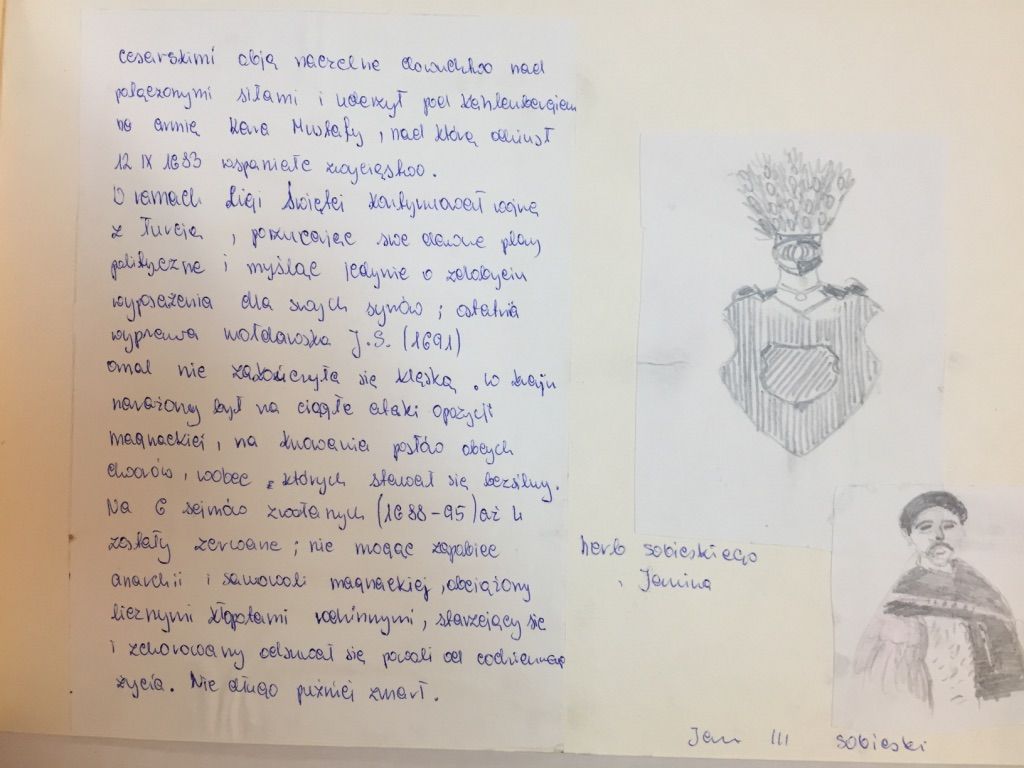 cesarskimi obją naczelne dowództwo nad
połączonymi siłami i uderzył pod Kahlenbergiem
na armię Kara Mustafy, nad którą odniósł
12 IX 1683 wspaniałe zwycięstwo.
W ramach Ligi Świętej kontynuował wojnę
z Turcją, porzucając swe dawne plany
polityczne i myśląc jedynie o zdobyciu
wyposażenia dla swych synów; ostatnia
wyprawa mołdawska J.S. (1691)
omal nie zakończyła się klęską. w kraju
narażony był na ciągłe ataki opozycji
magnackiej, na knowania posłów obcych
dworów, wobec których stawał się bezsilny.
Na 6 sejmów zwołanych (1688-95) aż 4
zostały zerwane; nie mogąc zapobiec
anarchii i samowoli magnackiej, obciążony
licznymi kłopotami rodzinnymi, starzejący się
i schorowany odsuwał się powoli od codziennego
życia. Nie długo puźniej zmarł.
herb sobieskiego
, Janina
Jan III sobieski